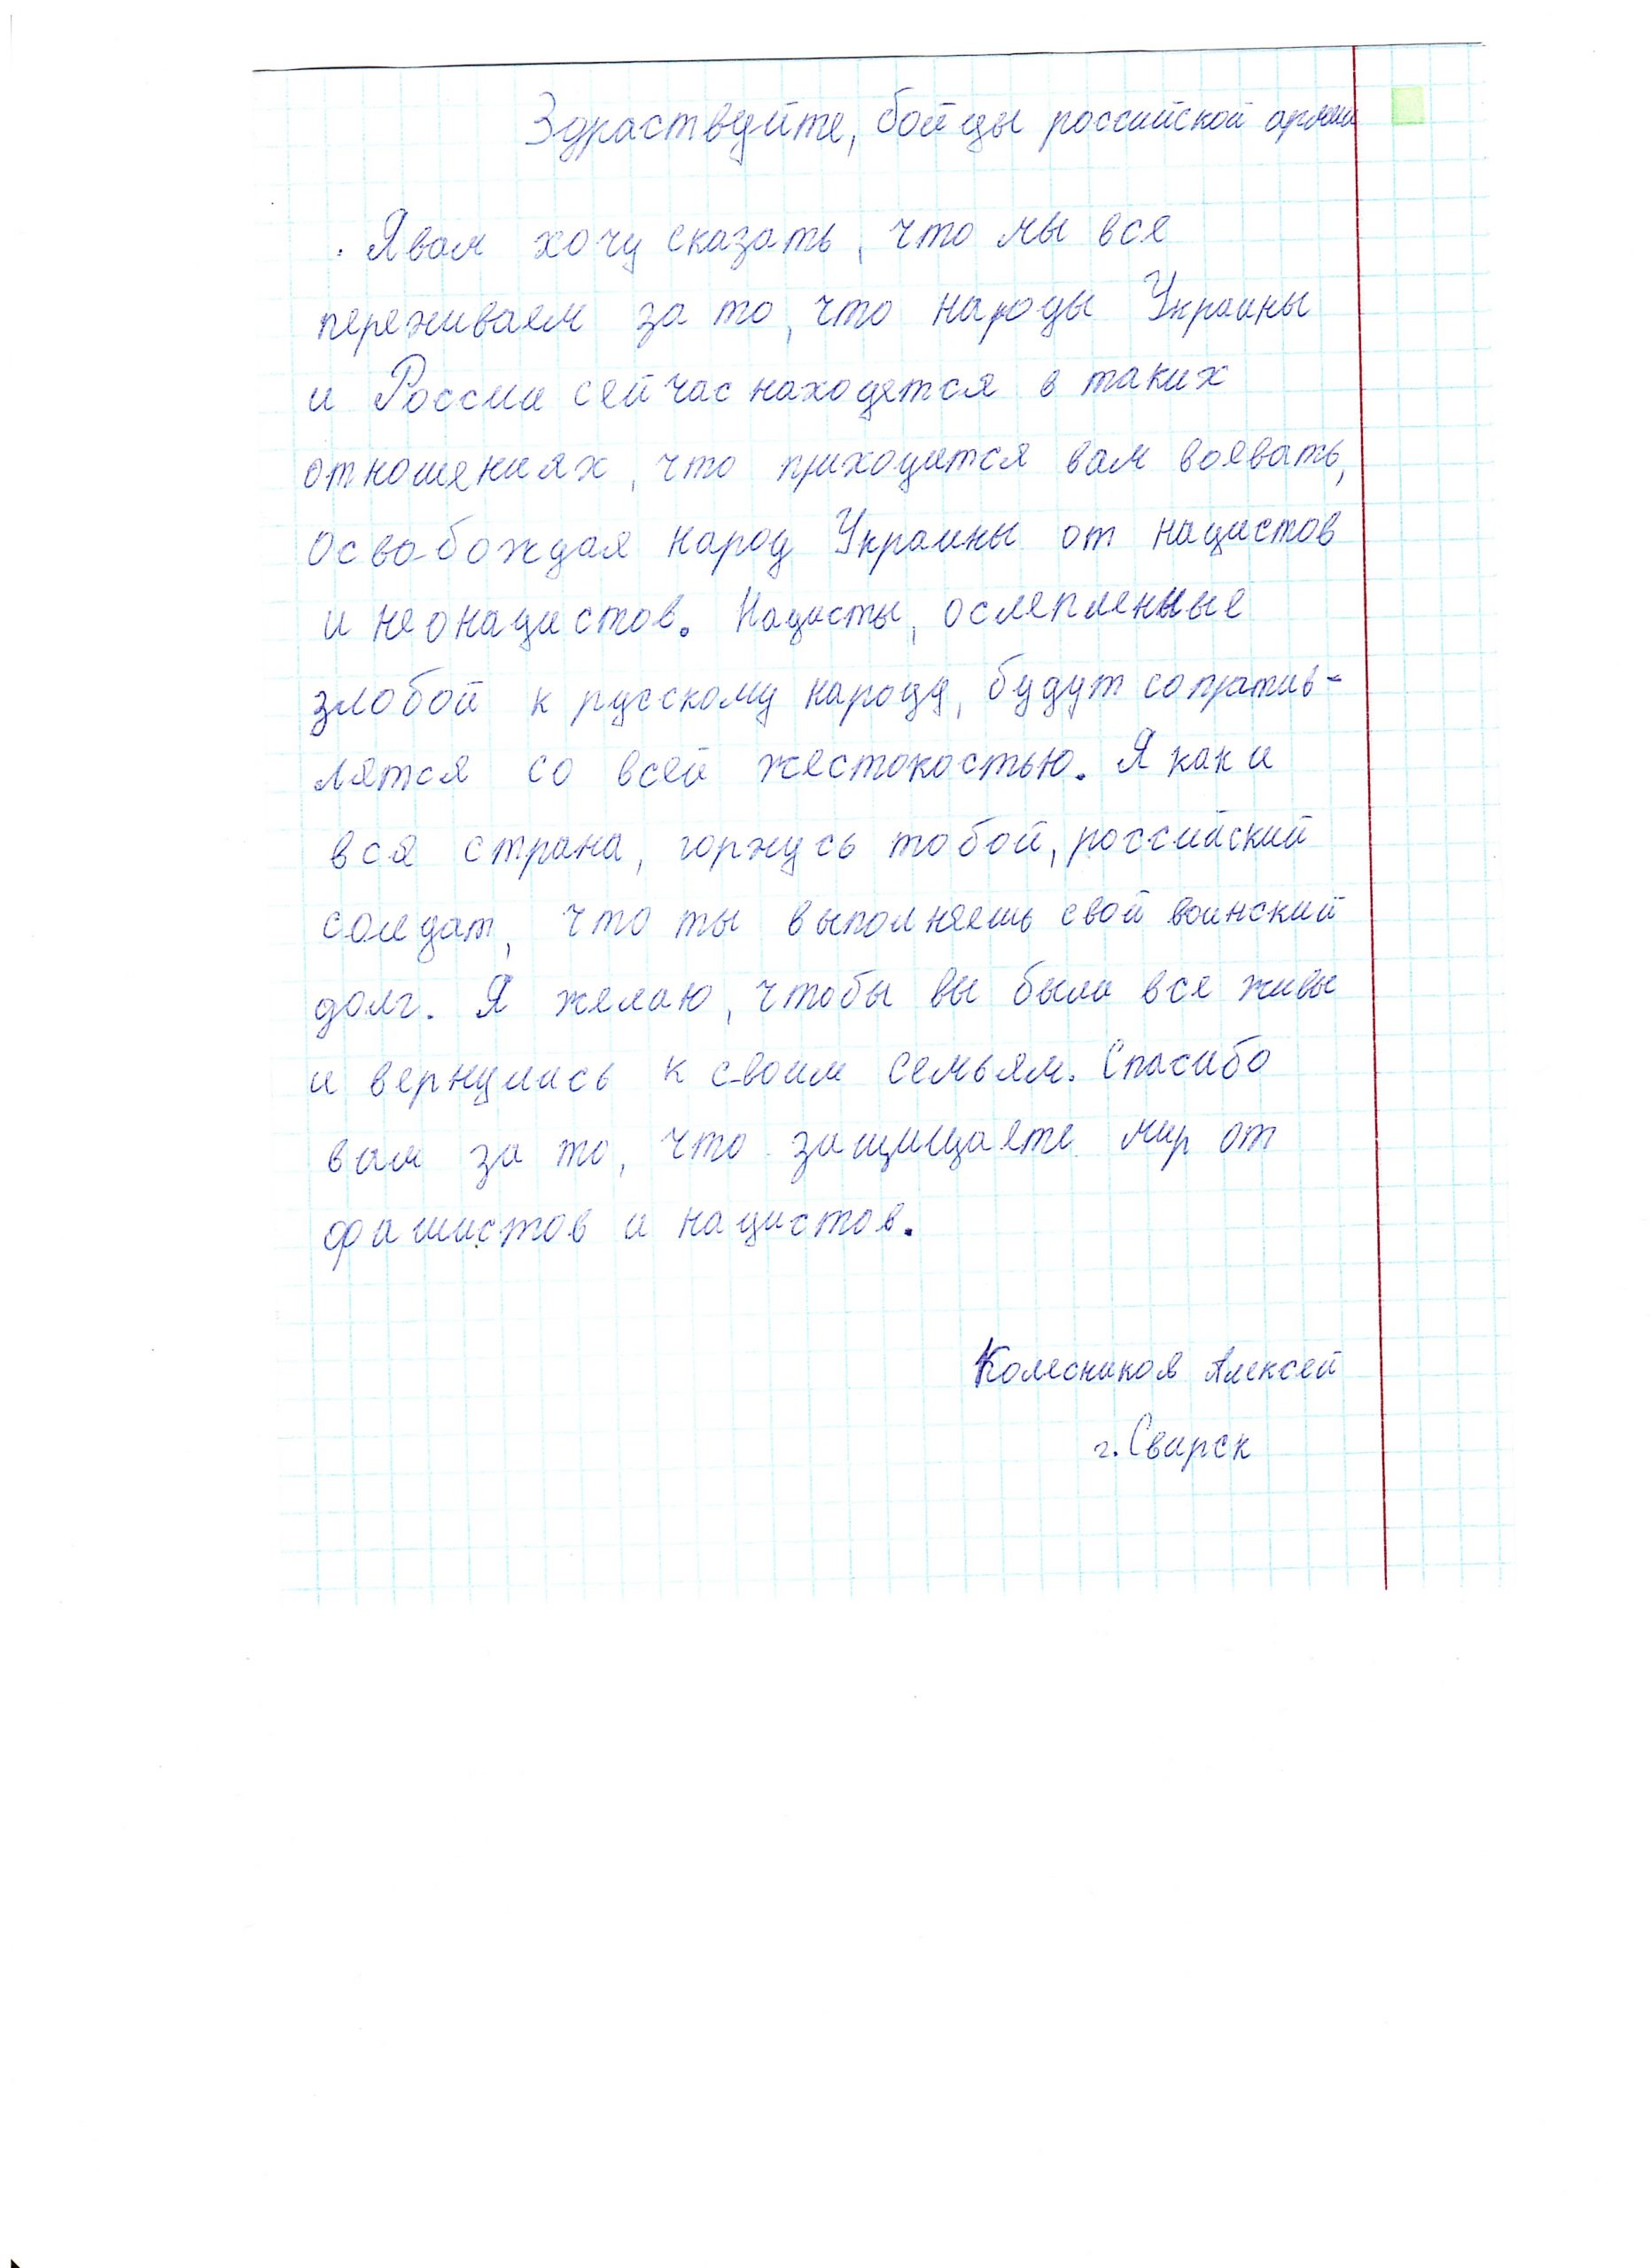 Здраствуйте, бойцы российской армии
Я вам хочу сказать, что мы все
переживаем за то, что народы Украины
и России сейчас находятся в таких
отношениях, что приходится вам воевать,
освобождая народ Украины от нацистов
и неонацистов. Нацисты, ослепленные
злобой к русскому народу, будут сопратив-
лятся со всей жестокостью. Я как и
вся страна, горжусь тобой, российский
солдат, что ты выполняешь свой воинский
долг. Я желаю, чтобы вы были все живы
и вернулись к своим семьям. Спасибо
вам за то, что защищаете мир от
фашистов и нацистов.
Колесников Алексей
г. Свирск